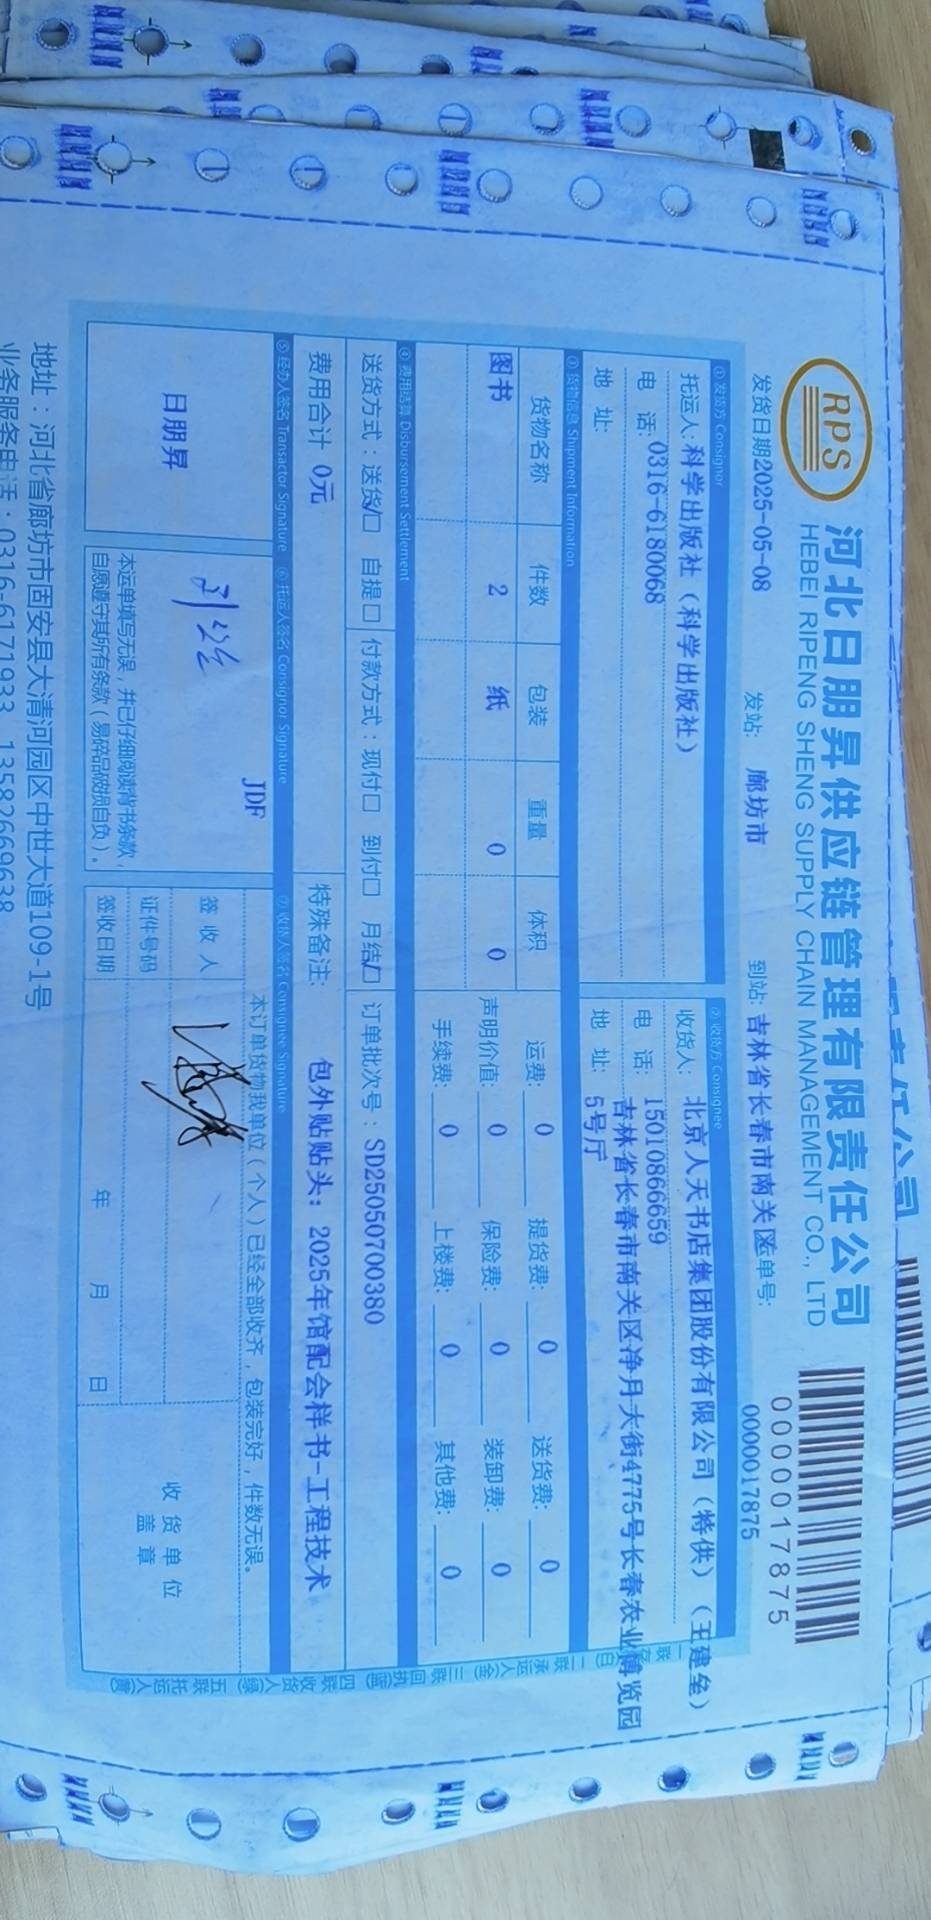 RPS
河北日朋昇供应链管理有限责任公司
HEBEI RIPENG SHENG SUPPLY CHAIN MANAGEMENT CO., LTD
0000017875
发货日期2025-05-08 发站: 廊坊市 到站: 吉林省长春市南关区运单号: 0000017875
① 发货方 Consignor
托运人: 科学出版社（科学出版社）
电 话: 0316-6180068
地 址:
② 收货方 Consignee
收货人: 北京人天书店集团股份有限公司（特供）（王建垒）
电 话: 15010866659
地 址: 吉林省长春市南关区净月大街4775号长春农业博览园
5号厅
③ 货物信息 Shipment Information
货物名称 件数 包装 重量 体积
图书 2 纸 0 0
运费: 0 提货费: 0 送货费: 0
声明价值: 0 保险费: 0 装卸费: 0
手续费: 0 上楼费: 0 其他费: 0
④ 费用结算 Disbursement Settlement
送货方式：送货☑ 自提□ 付款方式：现付□ 到付□ 月结☑ 订单批次号：SD25050700380
费用合计 0元 特殊备注: 包外贴贴头：2025年馆配会样书-工程技术
⑤ 经办人签名 Transactor Signature ⑥ 托运人签名 Consignor Signature ⑦ 收货人签名 Consignee Signature
日朋昇
JDF
本运单填写无误，并已仔细阅读背书条款，
自愿遵守其所有条款（易碎品破损自负）。
本订单货物我单位（个人）已经全部收齐，包装完好，件数无误。
签 收 人
证件号码
签收日期 年 月 日
收货单位
盖章
地址：河北省廊坊市固安县大清河园区中世大道109-1号
业务服务电话：0316-6171933 13582669638
责任公司